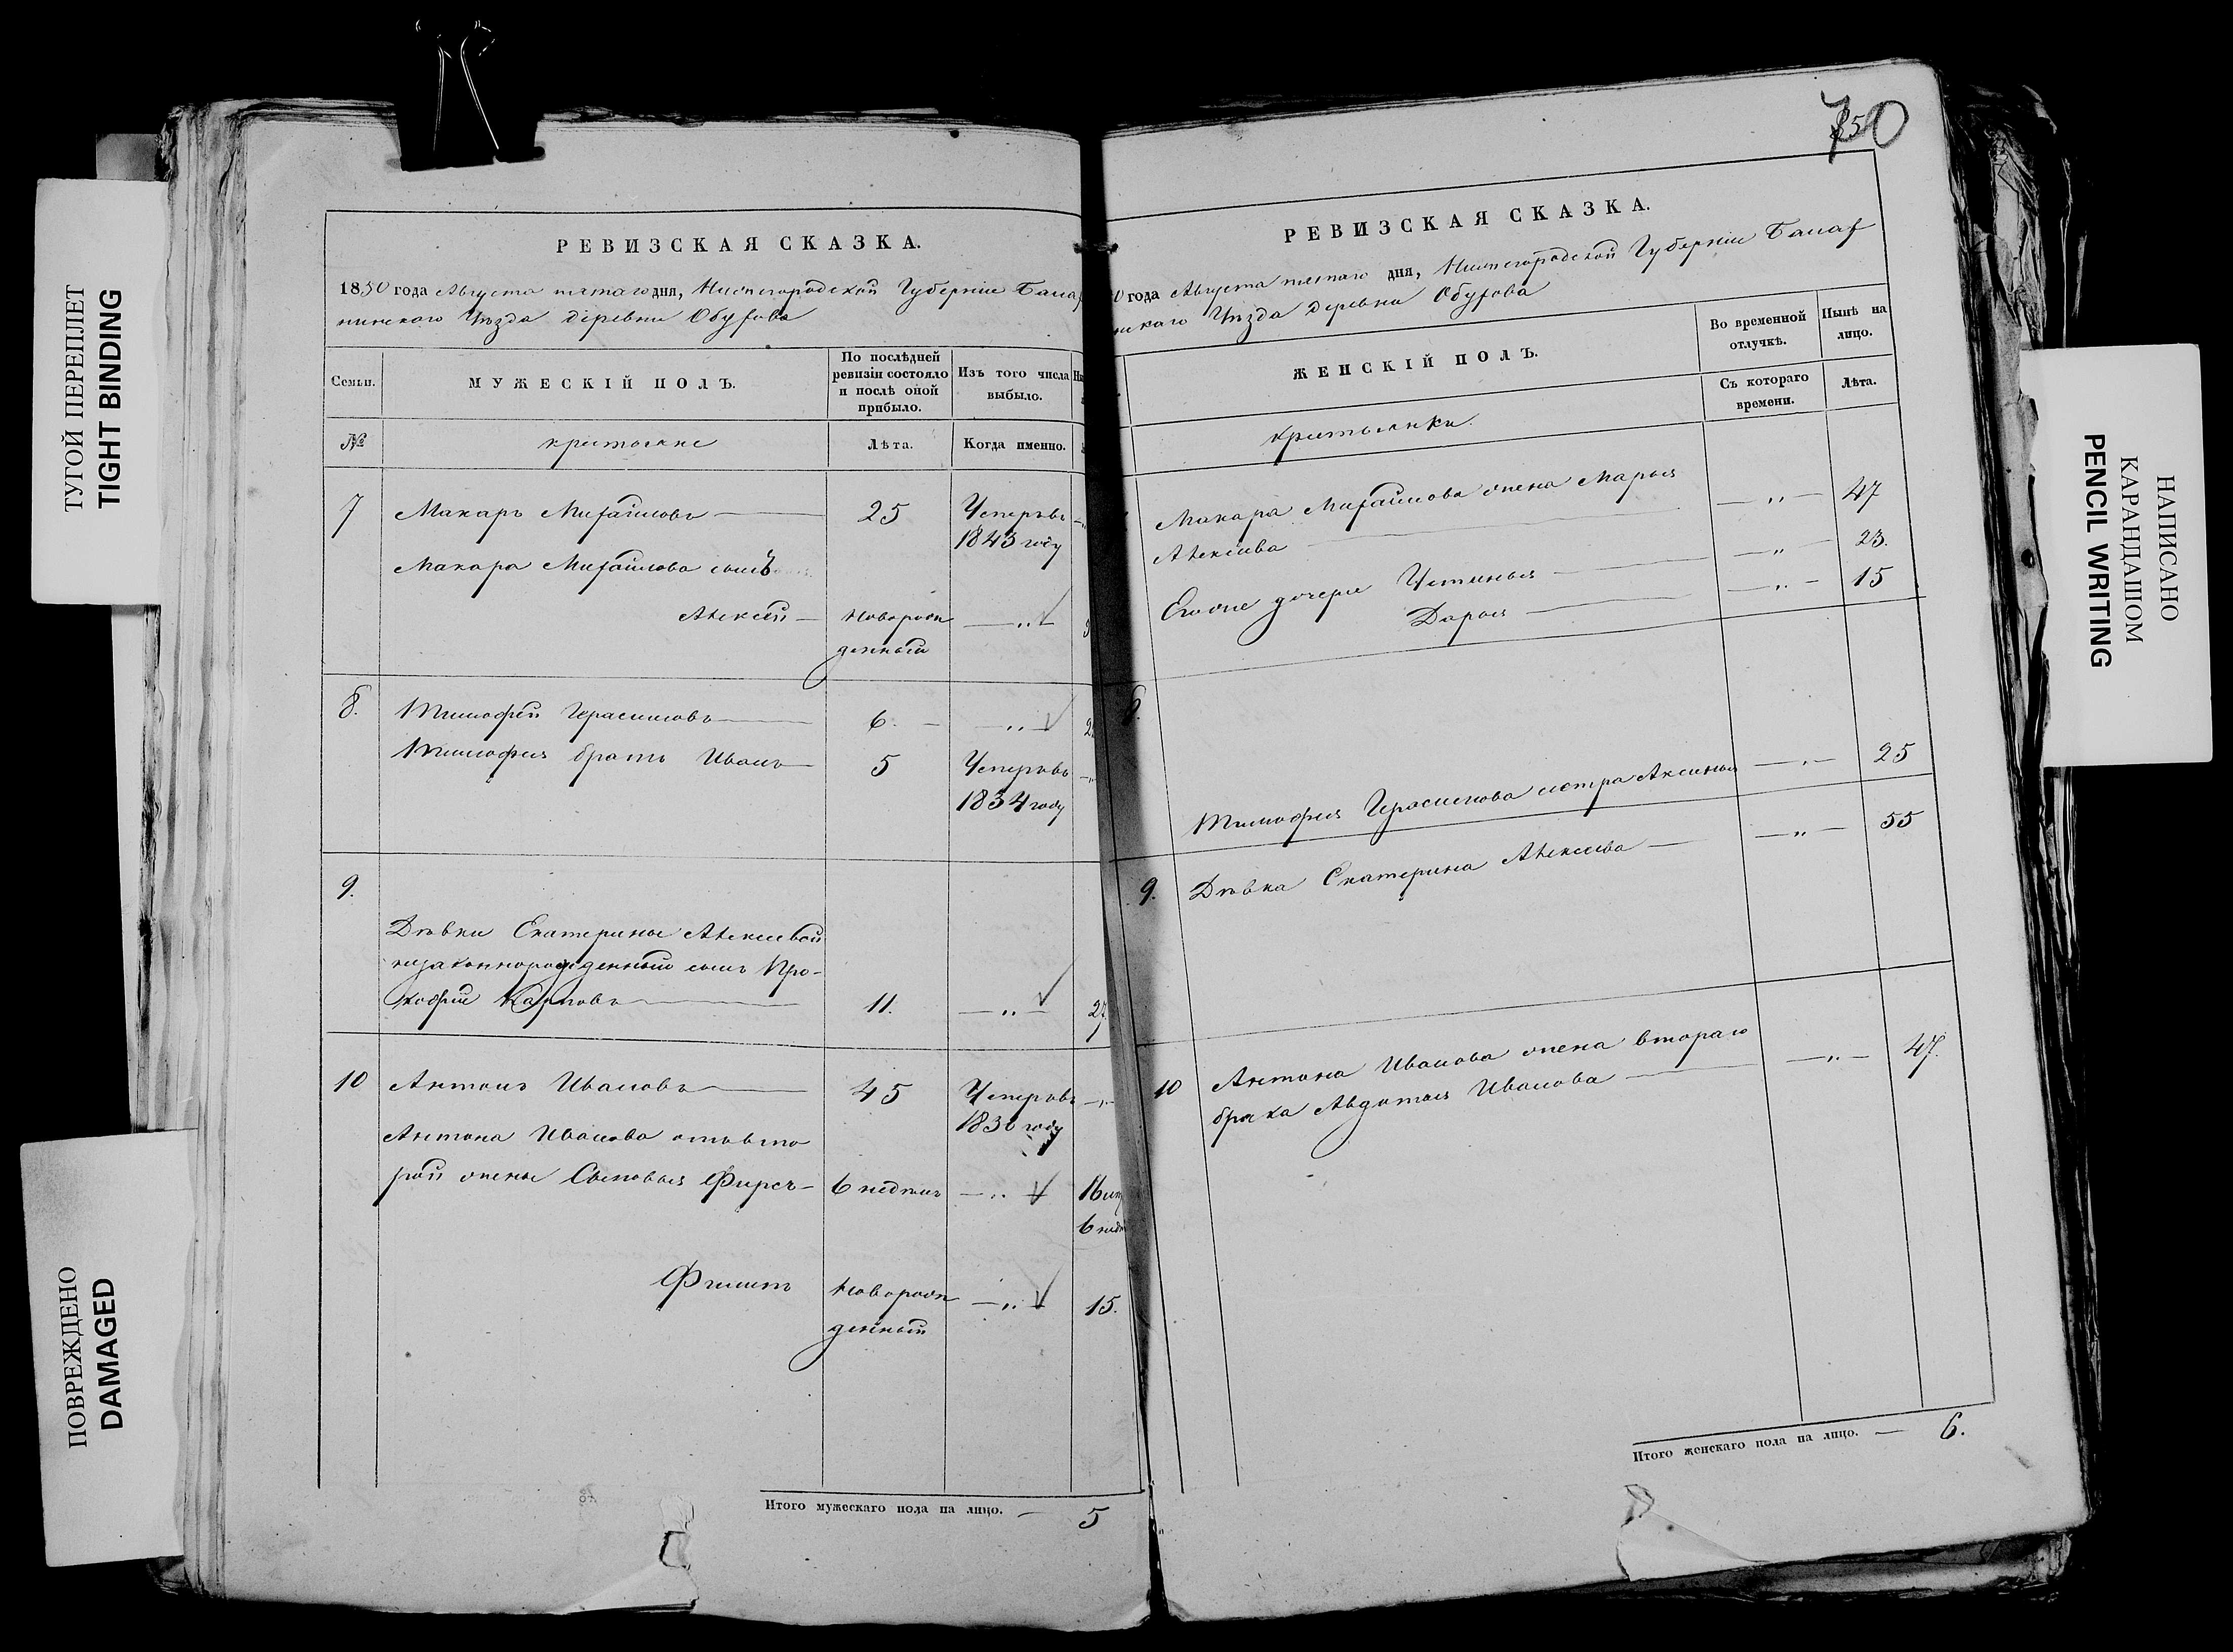 ТУГОЙ ПЕРЕПЛЕТ
TIGHT BINDING
ПОВРЕЖДЕНО
DAMAGED
РЕВИЗСКАЯ СКАЗКА.
1850 года Августа пятаго дня, Нижегородской Губерніи Балах
нинскаго Уѣзда деревни Обухова
Семьи.
МУЖЕСКІЙ ПОЛЪ.
По послѣдней
ревизіи состояло
и послѣ оной
прибыло.
Изъ того числа
выбыло.
№
крестьяне
Лѣта.
Когда именно.
7 Макаръ Михайловъ 25 Умеръ въ
1843 году
Макара Михайлова сынъ
Алексѣй Новорож
денный
8. Тимофей Герасимовъ 6
Тимофея братъ Иванъ 5 Умеръ въ
1834 году
9.
Дѣвки Екатерины Алексѣвой
незаконнорожденный сынъ Про-
кофій Карповъ 11. 27
10 Антонъ Ивановъ 45 Умеръ въ
183 году
Антона Иванова отъ вто
рой жены Сыновья Фирсъ 6 недѣль 16
6
Филипъ Новорож
денный 15.
Итого мужескаго пола на лицо. — 5
70
РЕВИЗСКАЯ СКАЗКА.
0 года Августа пятаго дня, Нижегородской Губерніи Балах
нинскаго Уѣзда деревни Обухова
ЖЕНСКІЙ ПОЛЪ.
Во временной
отлучкѣ.
Нынѣ на
лицо.
Съ котораго
времени.
Лѣта.
крестьянки.
Макара Михайлова жена Марья
Алексѣева 47
Его же дочери Устинья 23.
Дарья 15
8.
Тимофея Герасимова сестра Аксинья 25
9. Дѣвка Екатерина Алексѣева 55
10 Антона Иванова жена втораго
брака Авдотья Иванова 47.
Итого женскаго пола на лицо. — 6.
НАПИСАНО
КАРАНДАШОМ
PENCIL WRITING